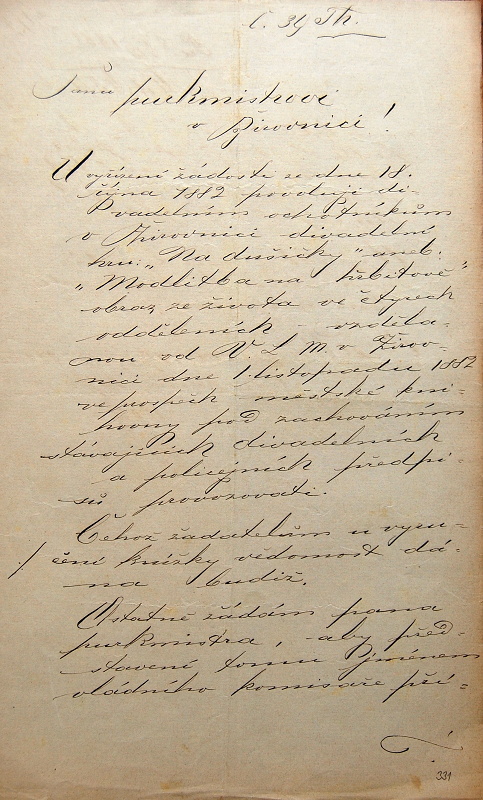 Č. 39 Th.
Panu purkmistrovi
v Žirovnici!
U vyřízení žádosti ze dne 18.
října 1882 povoluji di-
vadelním ochotníkům
v Žirovnici divadelní
hru: „Na dušičky" aneb.
„Modlitba na hřbitově"
obraz ze života ve čtyrech
odděleních - vzděla-
nou od V. L. M. v Žirov-
nici dne 1. listopadu 1882
ve prospěch městské kni-
hovny pod zachováním
stávajících divadelních
a policejních předpi-
sů provozovati.
Čehož žadatelům u vyru-
čení knížky vědomost dá-
na budiž.
Ostatně žádám pana
purkmistra, aby před-
stavení tomu jménem
vládního komisaře pří-
331